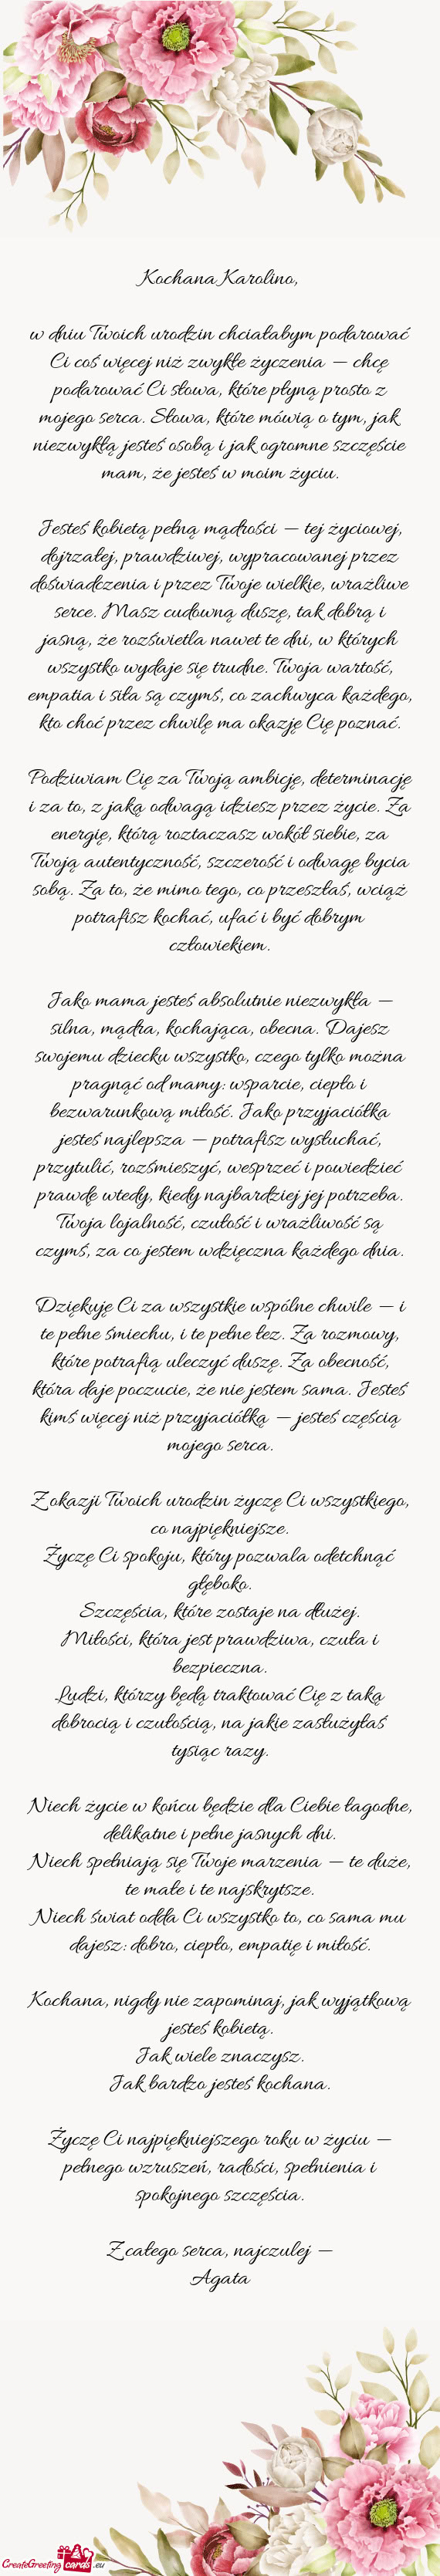 Kochana Karolino,
w dniu Twoich urodzin chciałabym podarować
Ci coś więcej niż zwykłe życzenia — chcę
podarować Ci słowa, które płyną prosto z
mojego serca. Słowa, które mówią o tym, jak
niezwykłą jesteś osobą i jak ogromne szczęście
mam, że jesteś w moim życiu.
Jesteś kobietą pełną mądrości — tej życiowej,
dojrzałej, prawdziwej, wypracowanej przez
doświadczenia i przez Twoje wielkie, wrażliwe
serce. Masz cudowną duszę, tak dobrą i
jasną, że rozświetla nawet te dni, w których
wszystko wydaje się trudne. Twoja wartość,
empatia i siła są czymś, co zachwyca każdego,
kto choć przez chwilę ma okazję Cię poznać.
Podziwiam Cię za Twoją ambicję, determinację
i za to, z jaką odwagą idziesz przez życie. Za
energię, którą roztaczasz wokół siebie, za
Twoją autentyczność, szczerość i odwagę bycia
sobą. Za to, że mimo tego, co przeszłaś, wciąż
potrafisz kochać, ufać i być dobrym
człowiekiem.
Jako mama jesteś absolutnie niezwykła —
silna, mądra, kochająca, obecna. Dajesz
swojemu dziecku wszystko, czego tylko można
pragnąć od mamy: wsparcie, ciepło i
bezwarunkową miłość. Jako przyjaciółka
jesteś najlepsza — potrafisz wysłuchać,
przytulić, rozśmieszyć, wesprzeć i powiedzieć
prawdę wtedy, kiedy najbardziej jej potrzeba.
Twoja lojalność, czułość i wrażliwość są
czymś, za co jestem wdzięczna każdego dnia.
Dziękuję Ci za wszystkie wspólne chwile — i
te pełne śmiechu, i te pełne łez. Za rozmowy,
które potrafią uleczyć duszę. Za obecność,
która daje poczucie, że nie jestem sama. Jesteś
kimś więcej niż przyjaciółką — jesteś częścią
mojego serca.
Z okazji Twoich urodzin życzę Ci wszystkiego,
co najpiękniejsze.
Życzę Ci spokoju, który pozwala odetchnąć
głęboko.
Szczęścia, które zostaje na dłużej.
Miłości, która jest prawdziwa, czuła i
bezpieczna.
Ludzi, którzy będą traktować Cię z taką
dobrocią i czułością, na jakie zasłużyłaś
tysiąc razy.
Niech życie w końcu będzie dla Ciebie łagodne,
delikatne i pełne jasnych dni.
Niech spełniają się Twoje marzenia — te duże,
te małe i te najskrytsze.
Niech świat odda Ci wszystko to, co sama mu
dajesz: dobro, ciepło, empatię i miłość.
Kochana, nigdy nie zapominaj, jak wyjątkową
jesteś kobietą.
Jak wiele znaczysz.
Jak bardzo jesteś kochana.
Życzę Ci najpiękniejszego roku w życiu —
pełnego wzruszeń, radości, spełnienia i
spokojnego szczęścia.
Z całego serca, najczulej —
Agata
CreateGreeting cards .eu